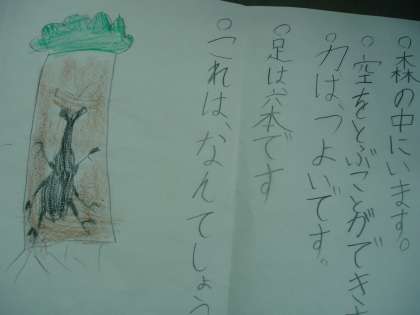 ○森の中にいます。
○空をとぶことができま
○力は、つよいです。
○足は六本です
○これは、なんでしょう